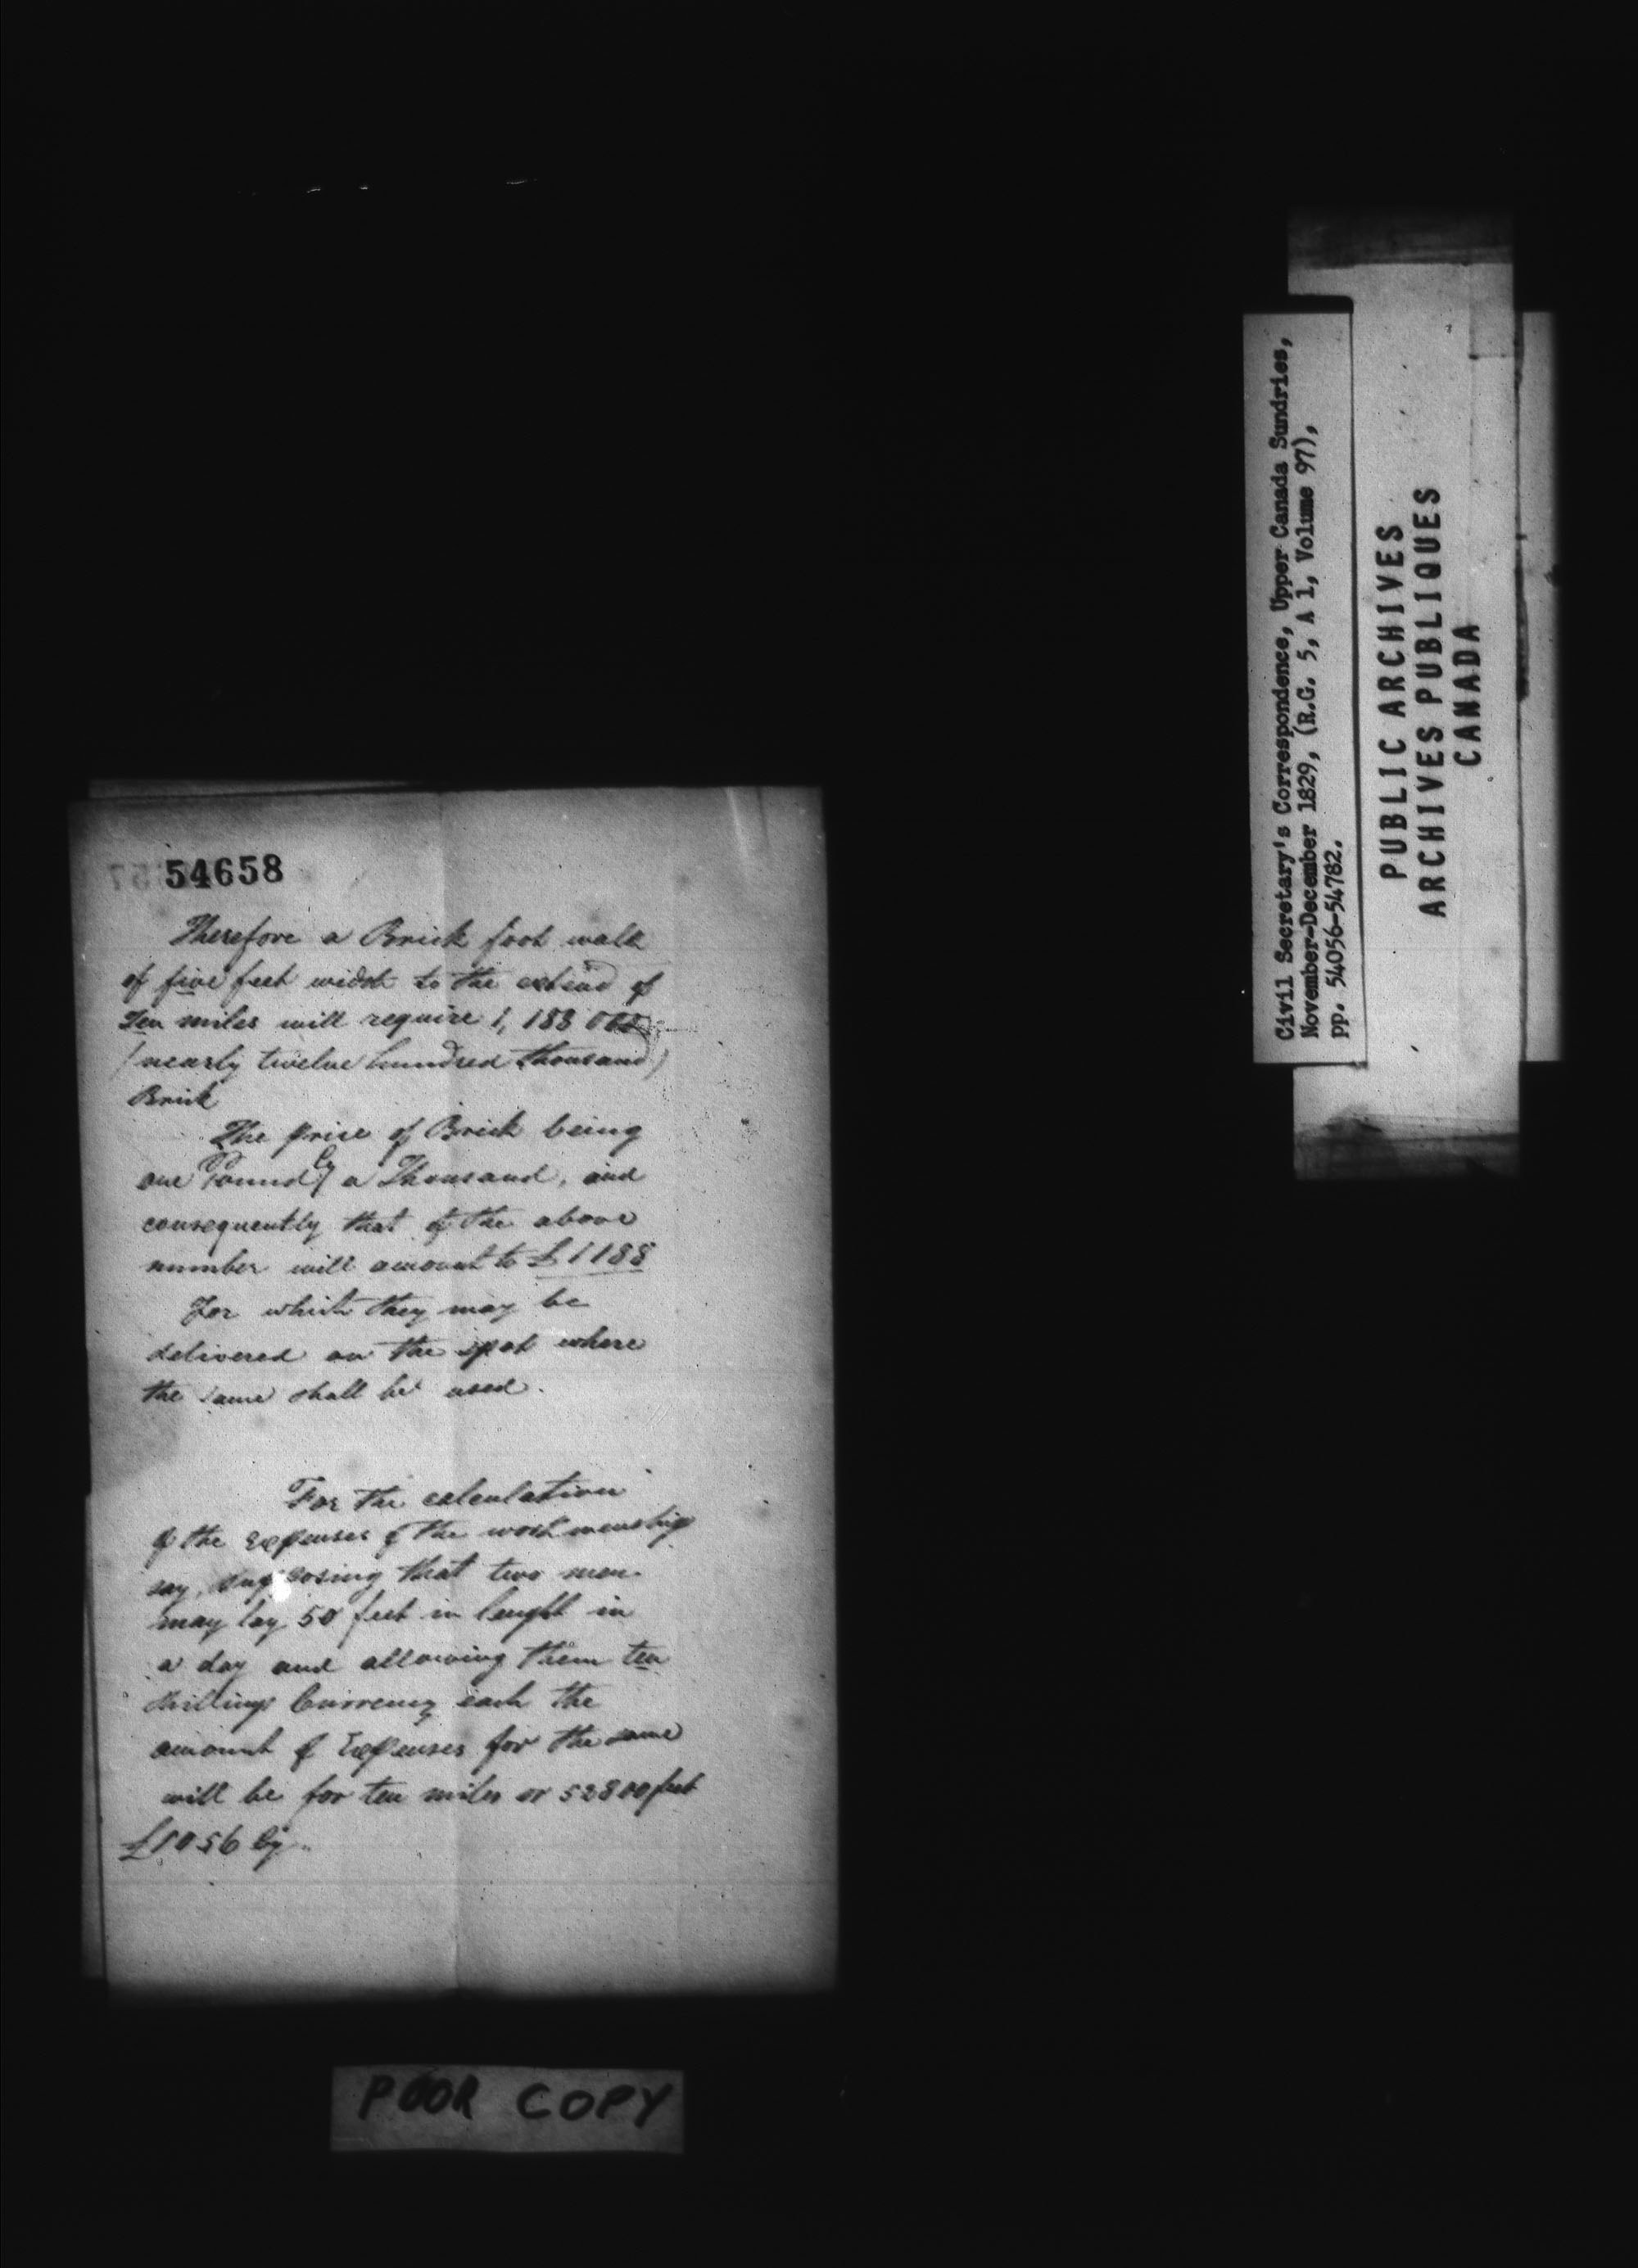 54658
Therefore a Brick foot walk
of five feet widdt to the extend of
Ten miles will require 1,188 000
(nearly twelve hundred thousand)
Brick
The price of Brick being
one Pound Cy a Thousand, and
consequently that of the above
number will amount to £1188
For which they may be
delivered on the spot where
the same shall be used.
For the calculation
of the Expenses of the workmenship
say, supposing that two men
may lay 50 feet in lenght in
a day and allowing them ten
shillings Currency each the
amount of Expenses for the same
will be for ten miles or 52800 feet
£1056 Cy.
POOR COPY
Civil Secretary's Correspondence, Upper Canada Sundries,
November-December 1829, (R.G. 5, A 1, Volume 97),
pp. 54056-54782.
PUBLIC ARCHIVES
ARCHIVES PUBLIQUES
CANADA